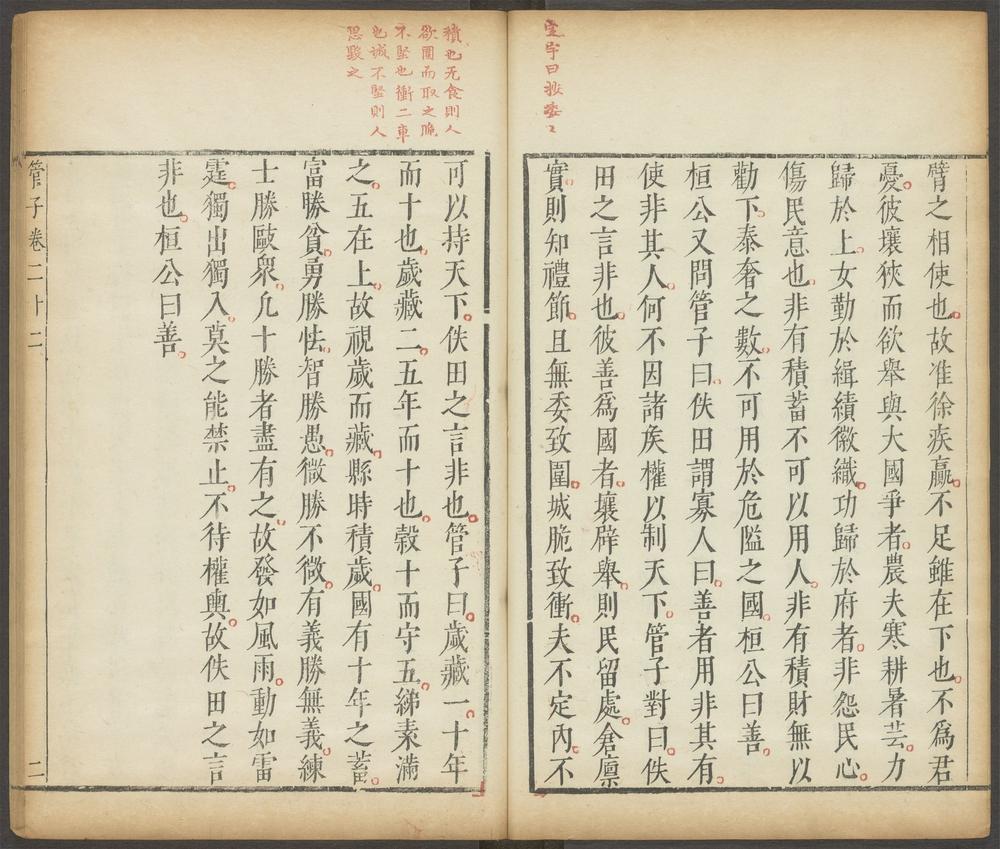 臂之相使也故准徐疾贏不足雖在下也不爲君
憂彼壤狹而欲舉與大國爭者農夫寒耕暑芸力
歸於上女勤於緝績徽織功歸於府者非怨民心
傷民意也非有積蓄不可以用人非有積財無以
勸下泰奢之數不可用於危隘之國桓公曰善
桓公又問管子曰佚田謂寡人曰善者用非其有
使非其人何不因諸矦權以制天下管子對曰佚
田之言非也彼善爲國者壤辟舉則民留處倉廪
實則知禮節且無委致圍城脆致衝夫不定內不
可以持天下佚田之言非也管子曰歲藏一十年
而十也歲藏二五年而十也榖十而守五綈素滿
之五在上故視歲而藏縣時積歲國有十年之蓄
富勝貧勇勝怯智勝愚微勝不微有義勝無義練
士勝歐衆凢十勝者盡有之故發如風雨動如雷
霆獨出獨入莫之能禁止不待權輿故佚田之言
非也桓公曰善
管子卷二十二
二
積也无食則人
欲圍而取之脆
不堅也衝二車
也城不堅則人
思毀之